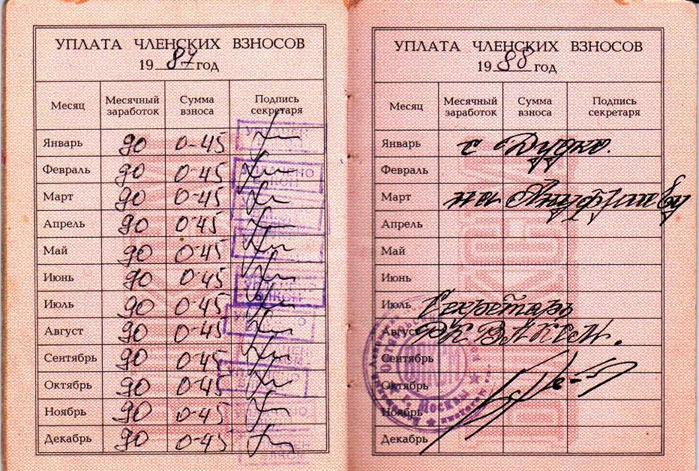 УПЛАТА ЧЛЕНСКИХ ВЗНОСОВ
19 87 год
Месяц Месячный заработок Сумма взноса Подпись секретаря
Январь 90 0-45
Февраль 90 0-45
Март 90 0-45
Апрель 90 0-45
Май 90 0-45
Июнь 90 0-45
Июль 90 0-45
Август 90 0-45
Сентябрь 90 0-45
Октябрь 90 0-45
Ноябрь 90 0-45
Декабрь 90 0-45
УПЛАТА ЧЛЕНСКИХ ВЗНОСОВ
19 88 год
Месяц Месячный заработок Сумма взноса Подпись секретаря
Январь с Дудко.
Февраль
Март на Ануфриеву
Апрель
Май
Июнь
Июль Секретарь
Август РК ВЛКСМ.
Сентябрь
Октябрь
Ноябрь
Декабрь
г. Москвы